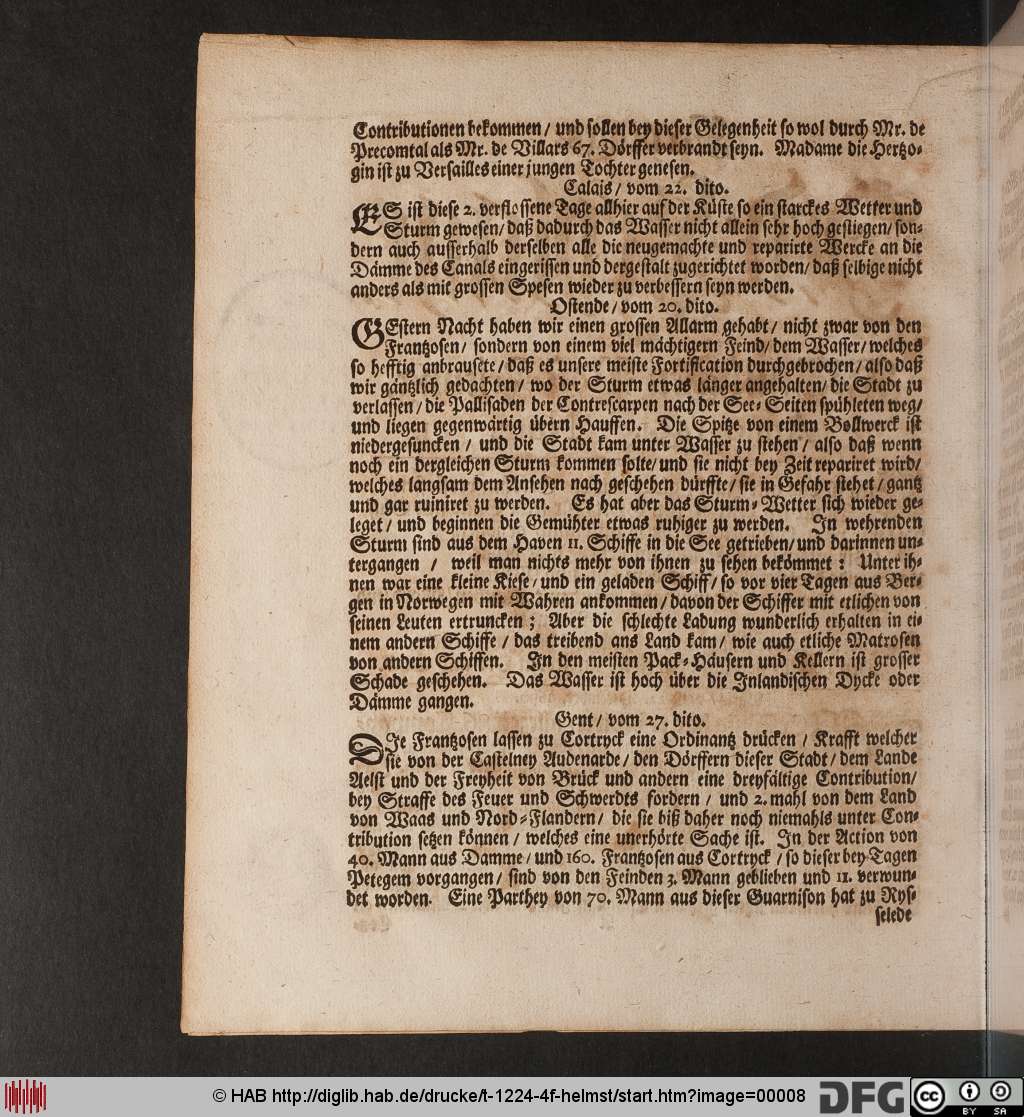 Contributionen bekommen / und sollen bey dieser Gelegenheit so wol durch Mr. de
Precomtal als Mr. de Villars 67. Dörffer verbrandt seyn. Madame die Hertzo-
gin ist zu Versailles einer jungen Tochter genesen.
Calais / vom 22. dito.
ES ist diese 2. verflossene Tage allhier auf der Küste so ein starckes Wetter und
Sturm gewesen / daß dadurch das Wasser nicht allein sehr hoch gestiegen / son-
dern auch ausserhalb derselben alle die neugemachte und reparirte Wercke an die
Dämme des Canals eingerissen und dergestalt zugerichtet worden / daß selbige nicht
anders als mit grossen Spesen wieder zu verbessern seyn werden.
Ostende / vom 20. dito.
GEstern Nacht haben wir einen grossen Allarm gehabt / nicht zwar von den
Frantzosen / sondern von einem viel mächtigern Feind / dem Wasser / welches
so hefftig anbrausete / daß es unsere meiste Fortification durchgebrochen / also daß
wir gäntzlich gedachten / wo der Sturm etwas länger angehalten / die Stadt zu
verlassen / die Pallisaden der Contrescarpen nach der See-Seiten spühleten weg /
und liegen gegenwärtig übern Hauffen. Die Spitze von einem Bollwerck ist
niedergesuncken / und die Stadt kam unter Wasser zu stehen / also daß wenn
noch ein dergleichen Sturm kommen solte / und sie nicht bey Zeit repariret wird /
welches langsam dem Ansehen nach geschehen dürffte / sie in Gefahr stehet / gantz
und gar ruiniret zu werden. Es hat aber das Sturm-Wetter sich wieder ge-
leget / und beginnen die Gemühter etwas ruhiger zu werden. In wehrenden
Sturm sind aus dem Haven 11. Schiffe in die See getrieben / und darinnen un-
tergangen / weil man nichts mehr von ihnen zu sehen bekömmet : Unter ih-
nen war eine kleine Kiese / und ein geladen Schiff / so vor vier Tagen aus Ber-
gen in Norwegen mit Wahren ankommen / davon der Schiffer mit etlichen von
seinen Leuten ertruncken ; Aber die schlechte Ladung wunderlich erhalten in ei-
nem andern Schiffe / das treibend ans Land kam / wie auch etliche Matrosen
von andern Schiffen. In den meisten Pack-Häusern und Kellern ist grosser
Schade geschehen. Das Wasser ist hoch über die Inlandischen Dycke oder
Dämme gangen.
Gent / vom 27. dito.
DIe Frantzosen lassen zu Cortryck eine Ordinantz drücken / Krafft welcher
sie von der Castelney Audenarde / den Dörffern dieser Stadt / dem Lande
Aelst und der Freyheit von Brück und andern eine dreyfältige Contribution /
bey Straffe des Feuer und Schwerdts fordern / und 2. mahl von dem Land
von Waas und Nord-Flandern / die sie biß daher noch niemahls unter Con-
tribution setzen können / welches eine unerhörte Sache ist. In der Action von
40. Mann aus Damme / und 160. Frantzosen aus Cortryck / so dieser bey Tagen
Petegem vorgangen / sind von den Feinden 3. Mann geblieben und 11. verwun-
det worden. Eine Parthey von 70. Mann aus dieser Guarnison hat zu Rys-
selede
© HAB http://diglib.hab.de/drucke/t-1224-4f-helmst/start.htm?image=00008
DFG
cc
BY SA